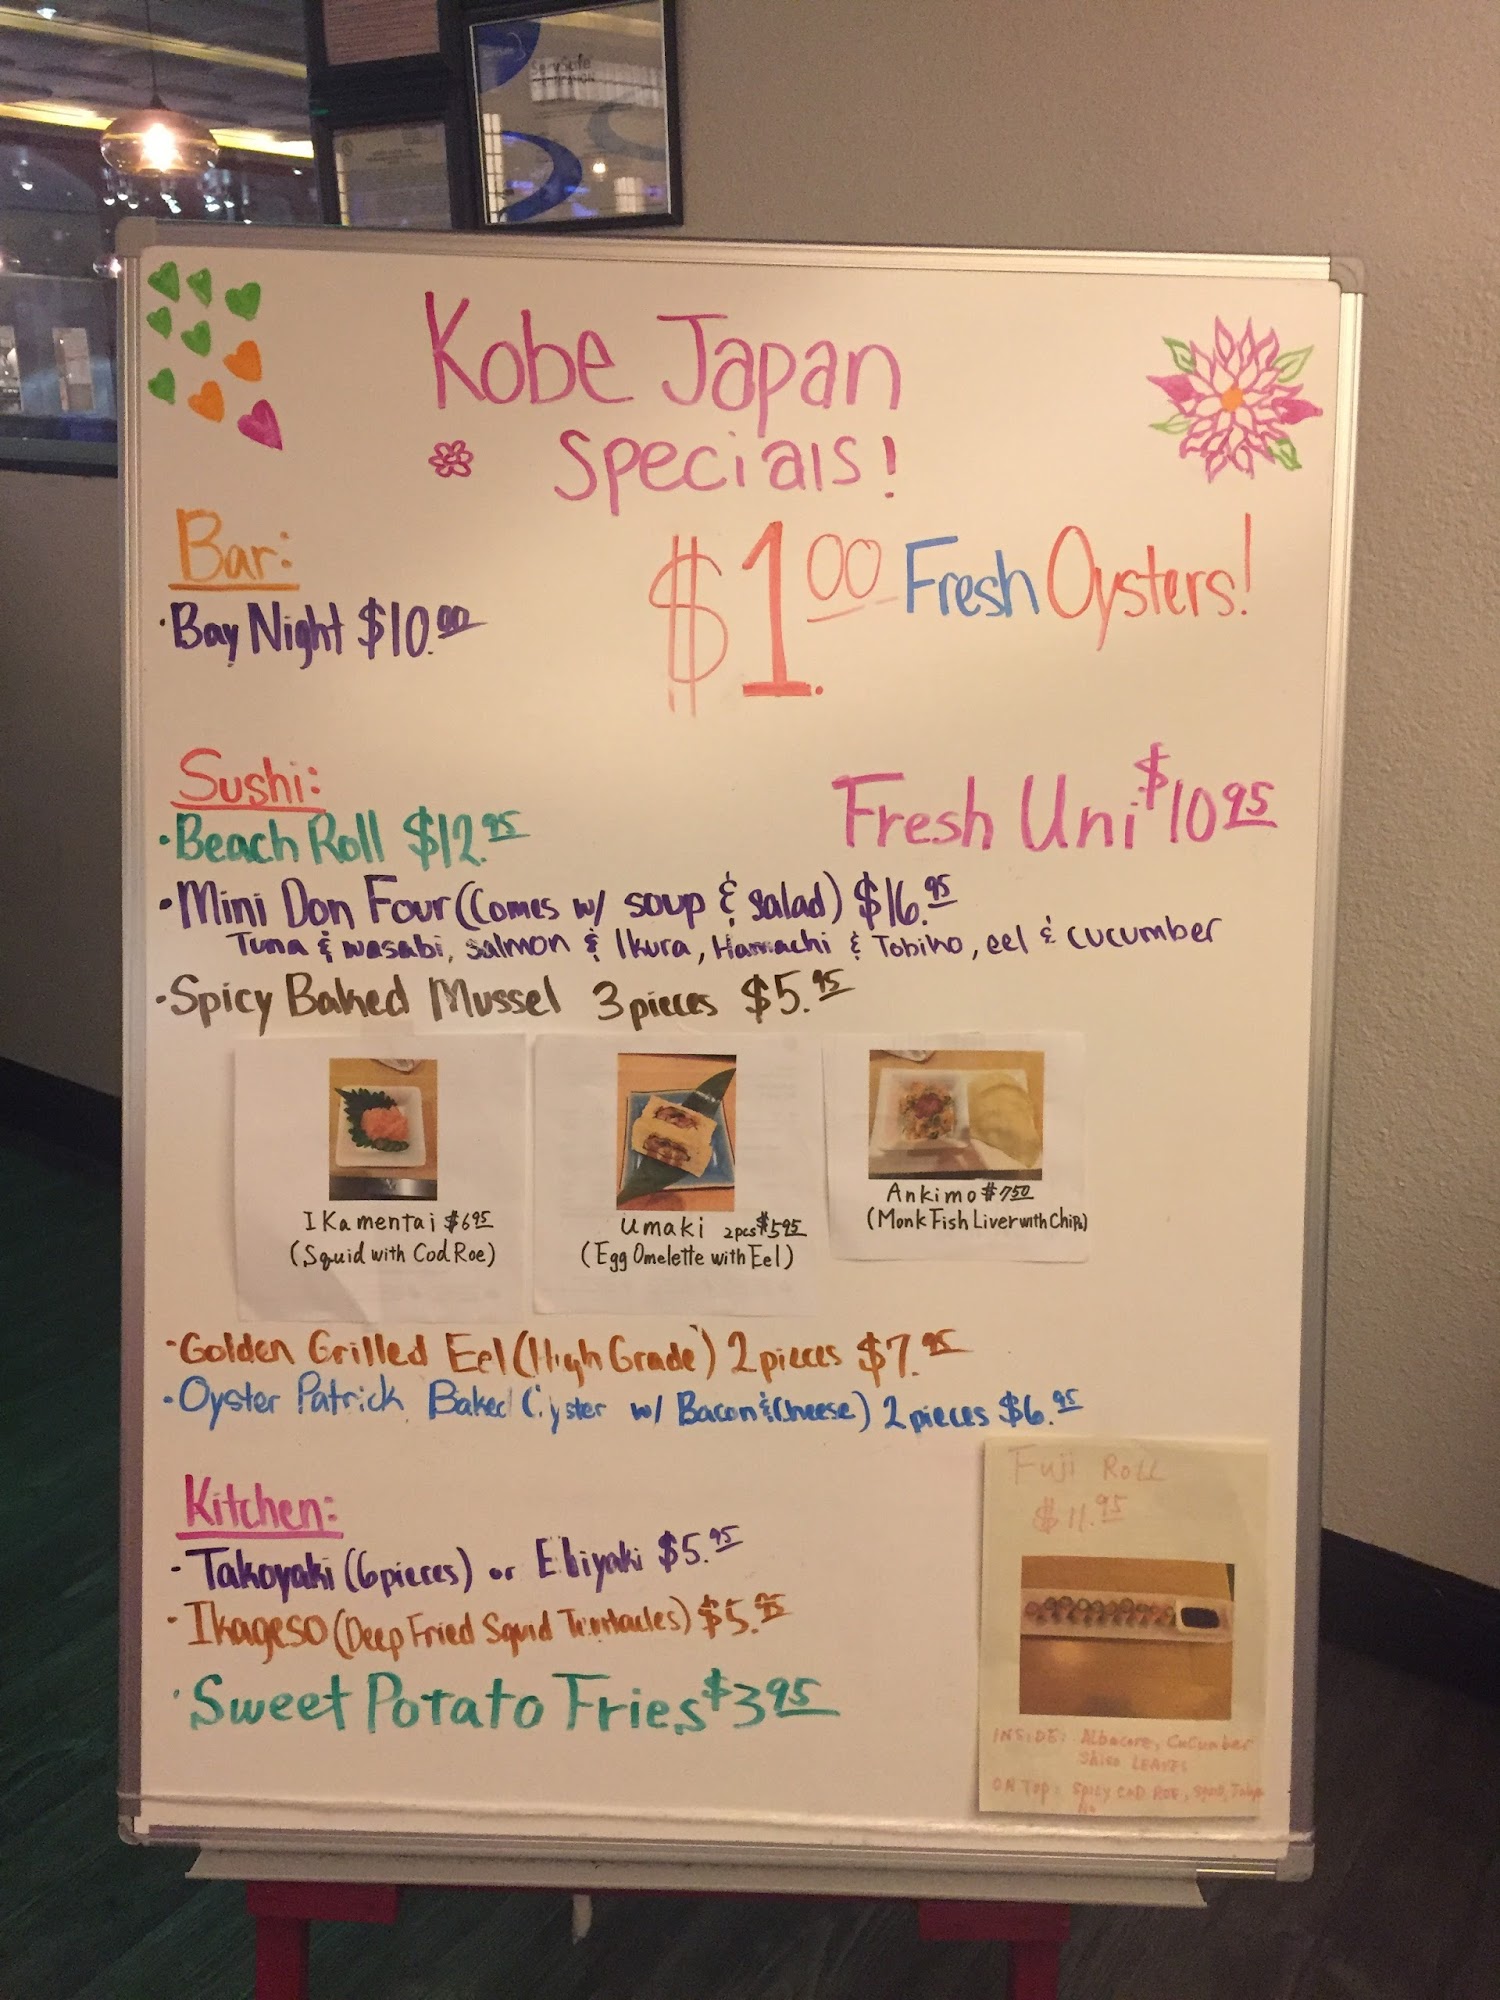 ServSafe
Kobe Japan
Specials!
Bar:
$1.00 Fresh Oysters!
·Bay Night $10.00
Sushi:
Fresh Uni $10.95
·Beach Roll $12.95
·Mini Don Four (Comes w/ soup & salad) $16.95
Tuna & wasabi, Salmon & Ikura, Hamachi & Tobiko, eel & cucumber
·Spicy Baked Mussel 3 pieces $5.95
Ikamentai $6.95
(Squid with Cod Roe)
Umaki 2pcs $5.95
(Egg Omelette with Eel)
Ankimo $7.50
(Monk Fish Liver with Chips)
·Golden Grilled Eel (High Grade) 2 pieces $7.95
·Oyster Patrick Baked Oyster w/ Bacon & Cheese) 2 pieces $6.95
Kitchen:
·Takoyaki (6 pieces) or Ebiyaki $5.95
·Ikageso (Deep Fried Squid Tentacles) $5.95
·Sweet Potato Fries $3.95
Fuji Roll
$11.95
INSIDE: Albacore, Cucumber
Shiso LEAVES
ON TOP: Spicy COD ROE,